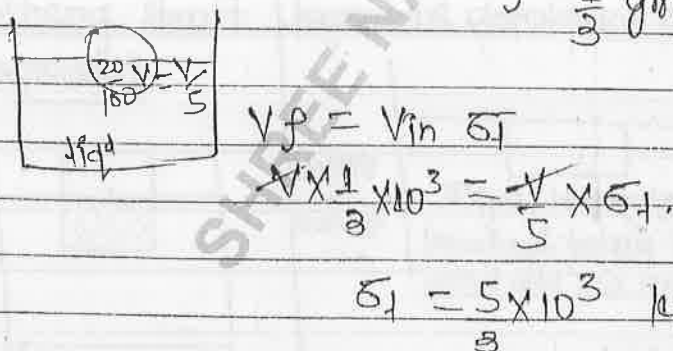 1/3 gm
20/100 V = V/5
liqd
Vρ = Vin σ1
V × 1/3 × 10³ = V/5 × σ1.
σ1 = 5/3 × 10³ k
SHREE NA